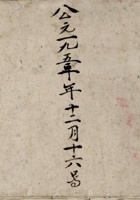 公元一九五十年十二月十六号